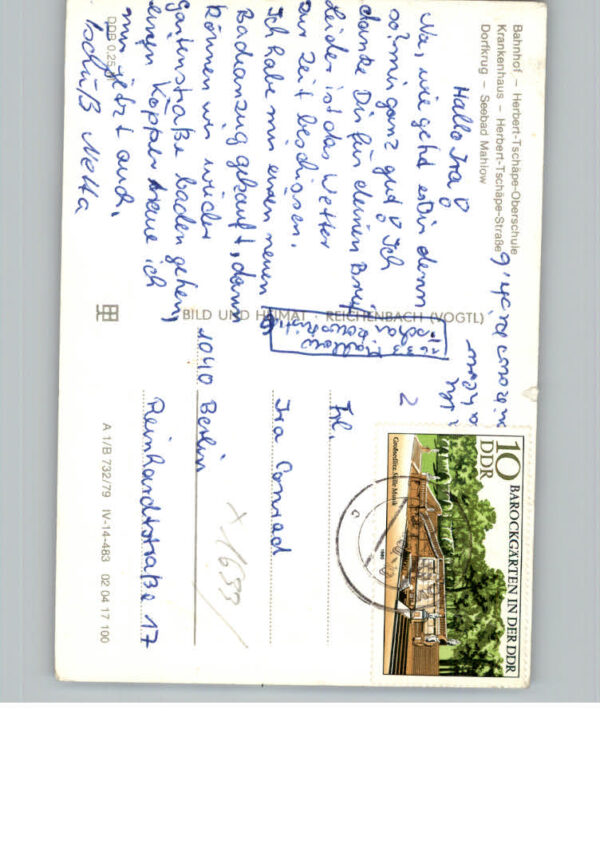 Bahnhof – Herbert-Tschäpe-Oberschule
Krankenhaus – Herbert-Tschäpe-Straße
Dorfkrug – Seebad Mahlow
Hallo Ira!
Na, wie geht es Dir denn
so? mir ganz gut! Ich
danke Dir für deinen Brief
Leider ist das Wetter
zur Zeit beschissen.
Ich habe mir einen neuen
Badeanzug gekauft, dann
können wir wieder
gartenstraße baden gehen,
einen Köpper traue ich
mir jetzt auch.
Tschüß Netta
DDR 0,25
BILD UND HEIMAT · REICHENBACH (VOGTL)
Mahlow
2
Frl.
Ira Conrad
1040 Berlin
Reinhardtstraße 17
x 1699
A 1/B 732/79 IV-14-483 02 04 17 100
10
DDR
BAROCKGÄRTEN IN DER DDR
Großsedlitz, Stille Musik